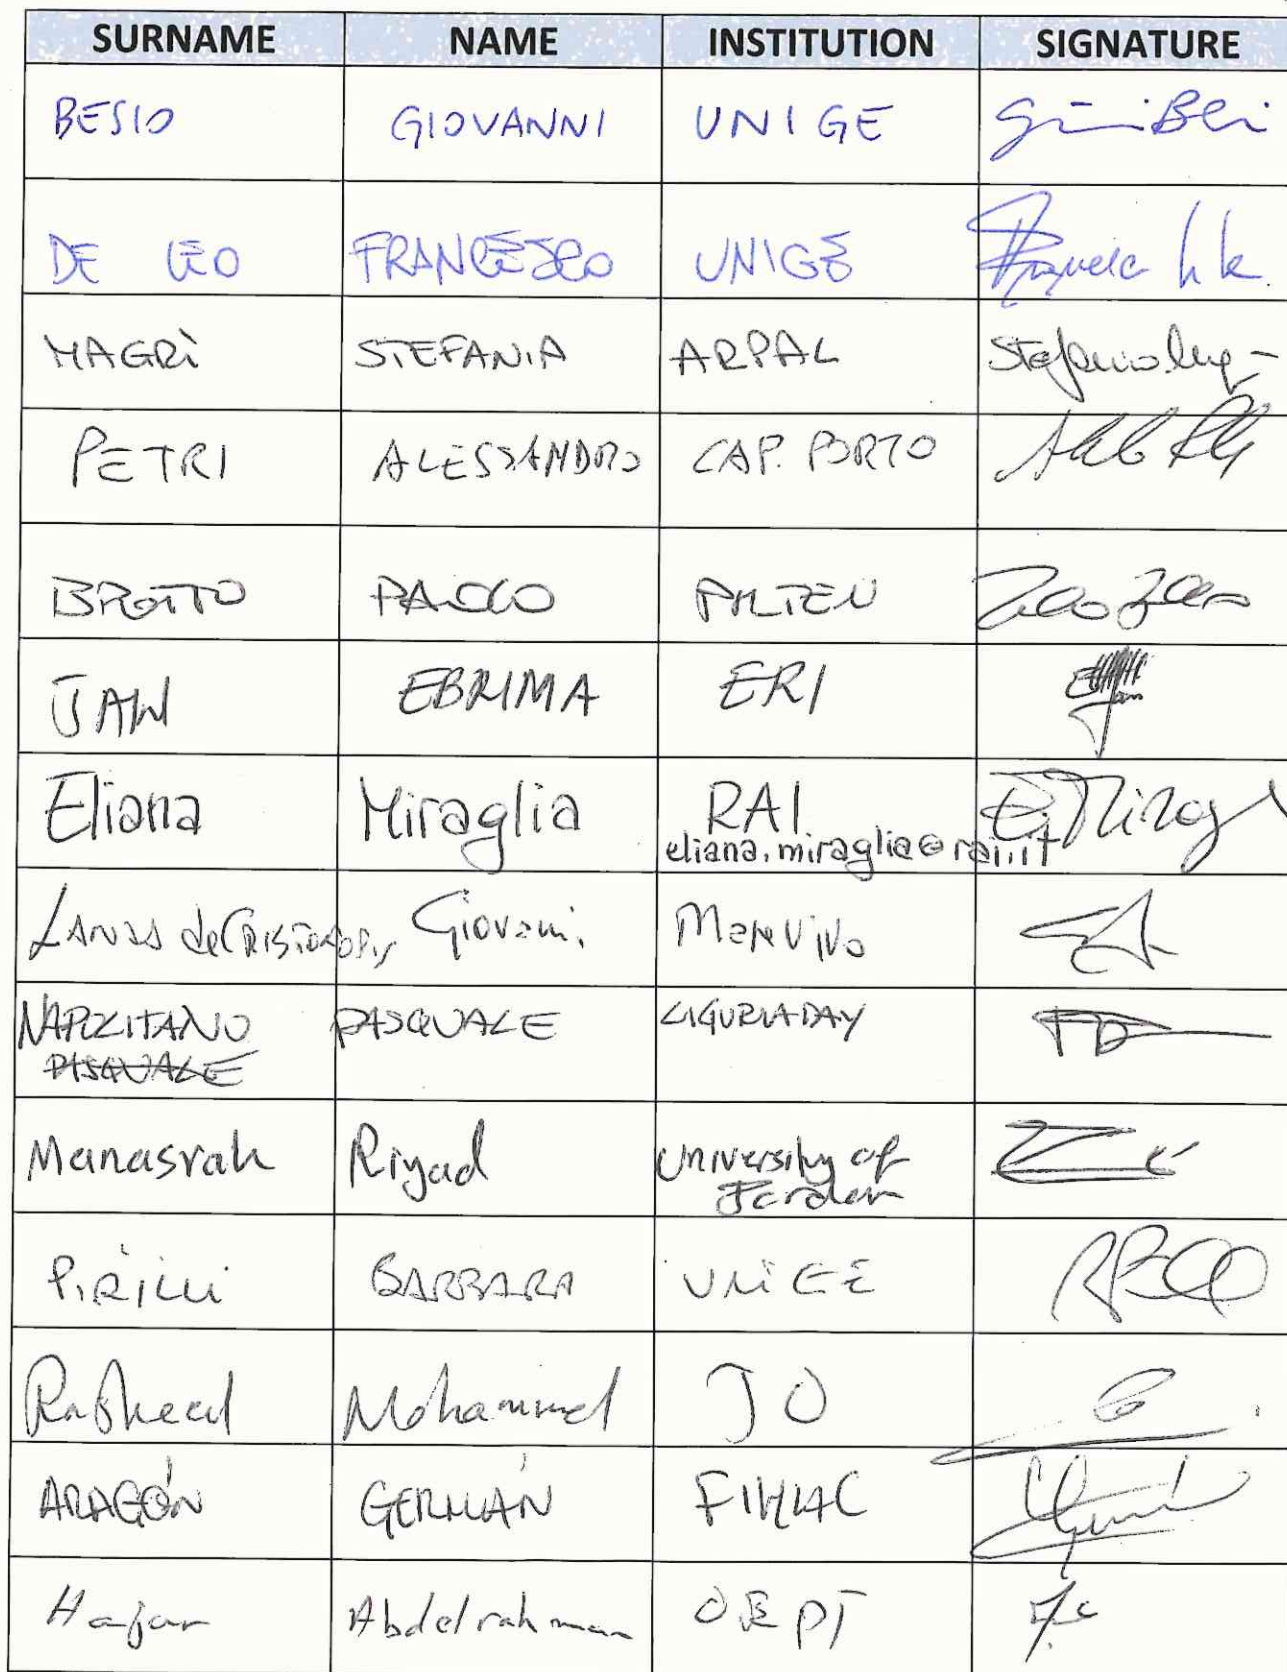 SURNAME NAME INSTITUTION SIGNATURE
BESIO GIOVANNI UNIGE
DE LEO FRANCESCO UNIGE
MAGRÌ STEFANIA ARPAL
PETRI ALESSANDRO CAP. PORTO
BROTTO PAOLO
JAW EBRIMA ERI
Eliana Miraglia RAI E. Mirag
eliana.miraglia@rai.it
Giovanni MareVivo
NAPOLITANO PASQUALE LIGURIADAY
PASQUALE
Manasrah Riyad University of
Jordan
BARBARA UNIGE
Rasheed Mohammed JO
ARAGÓN GERMÁN FIHAC
Hajar Abdelrahman